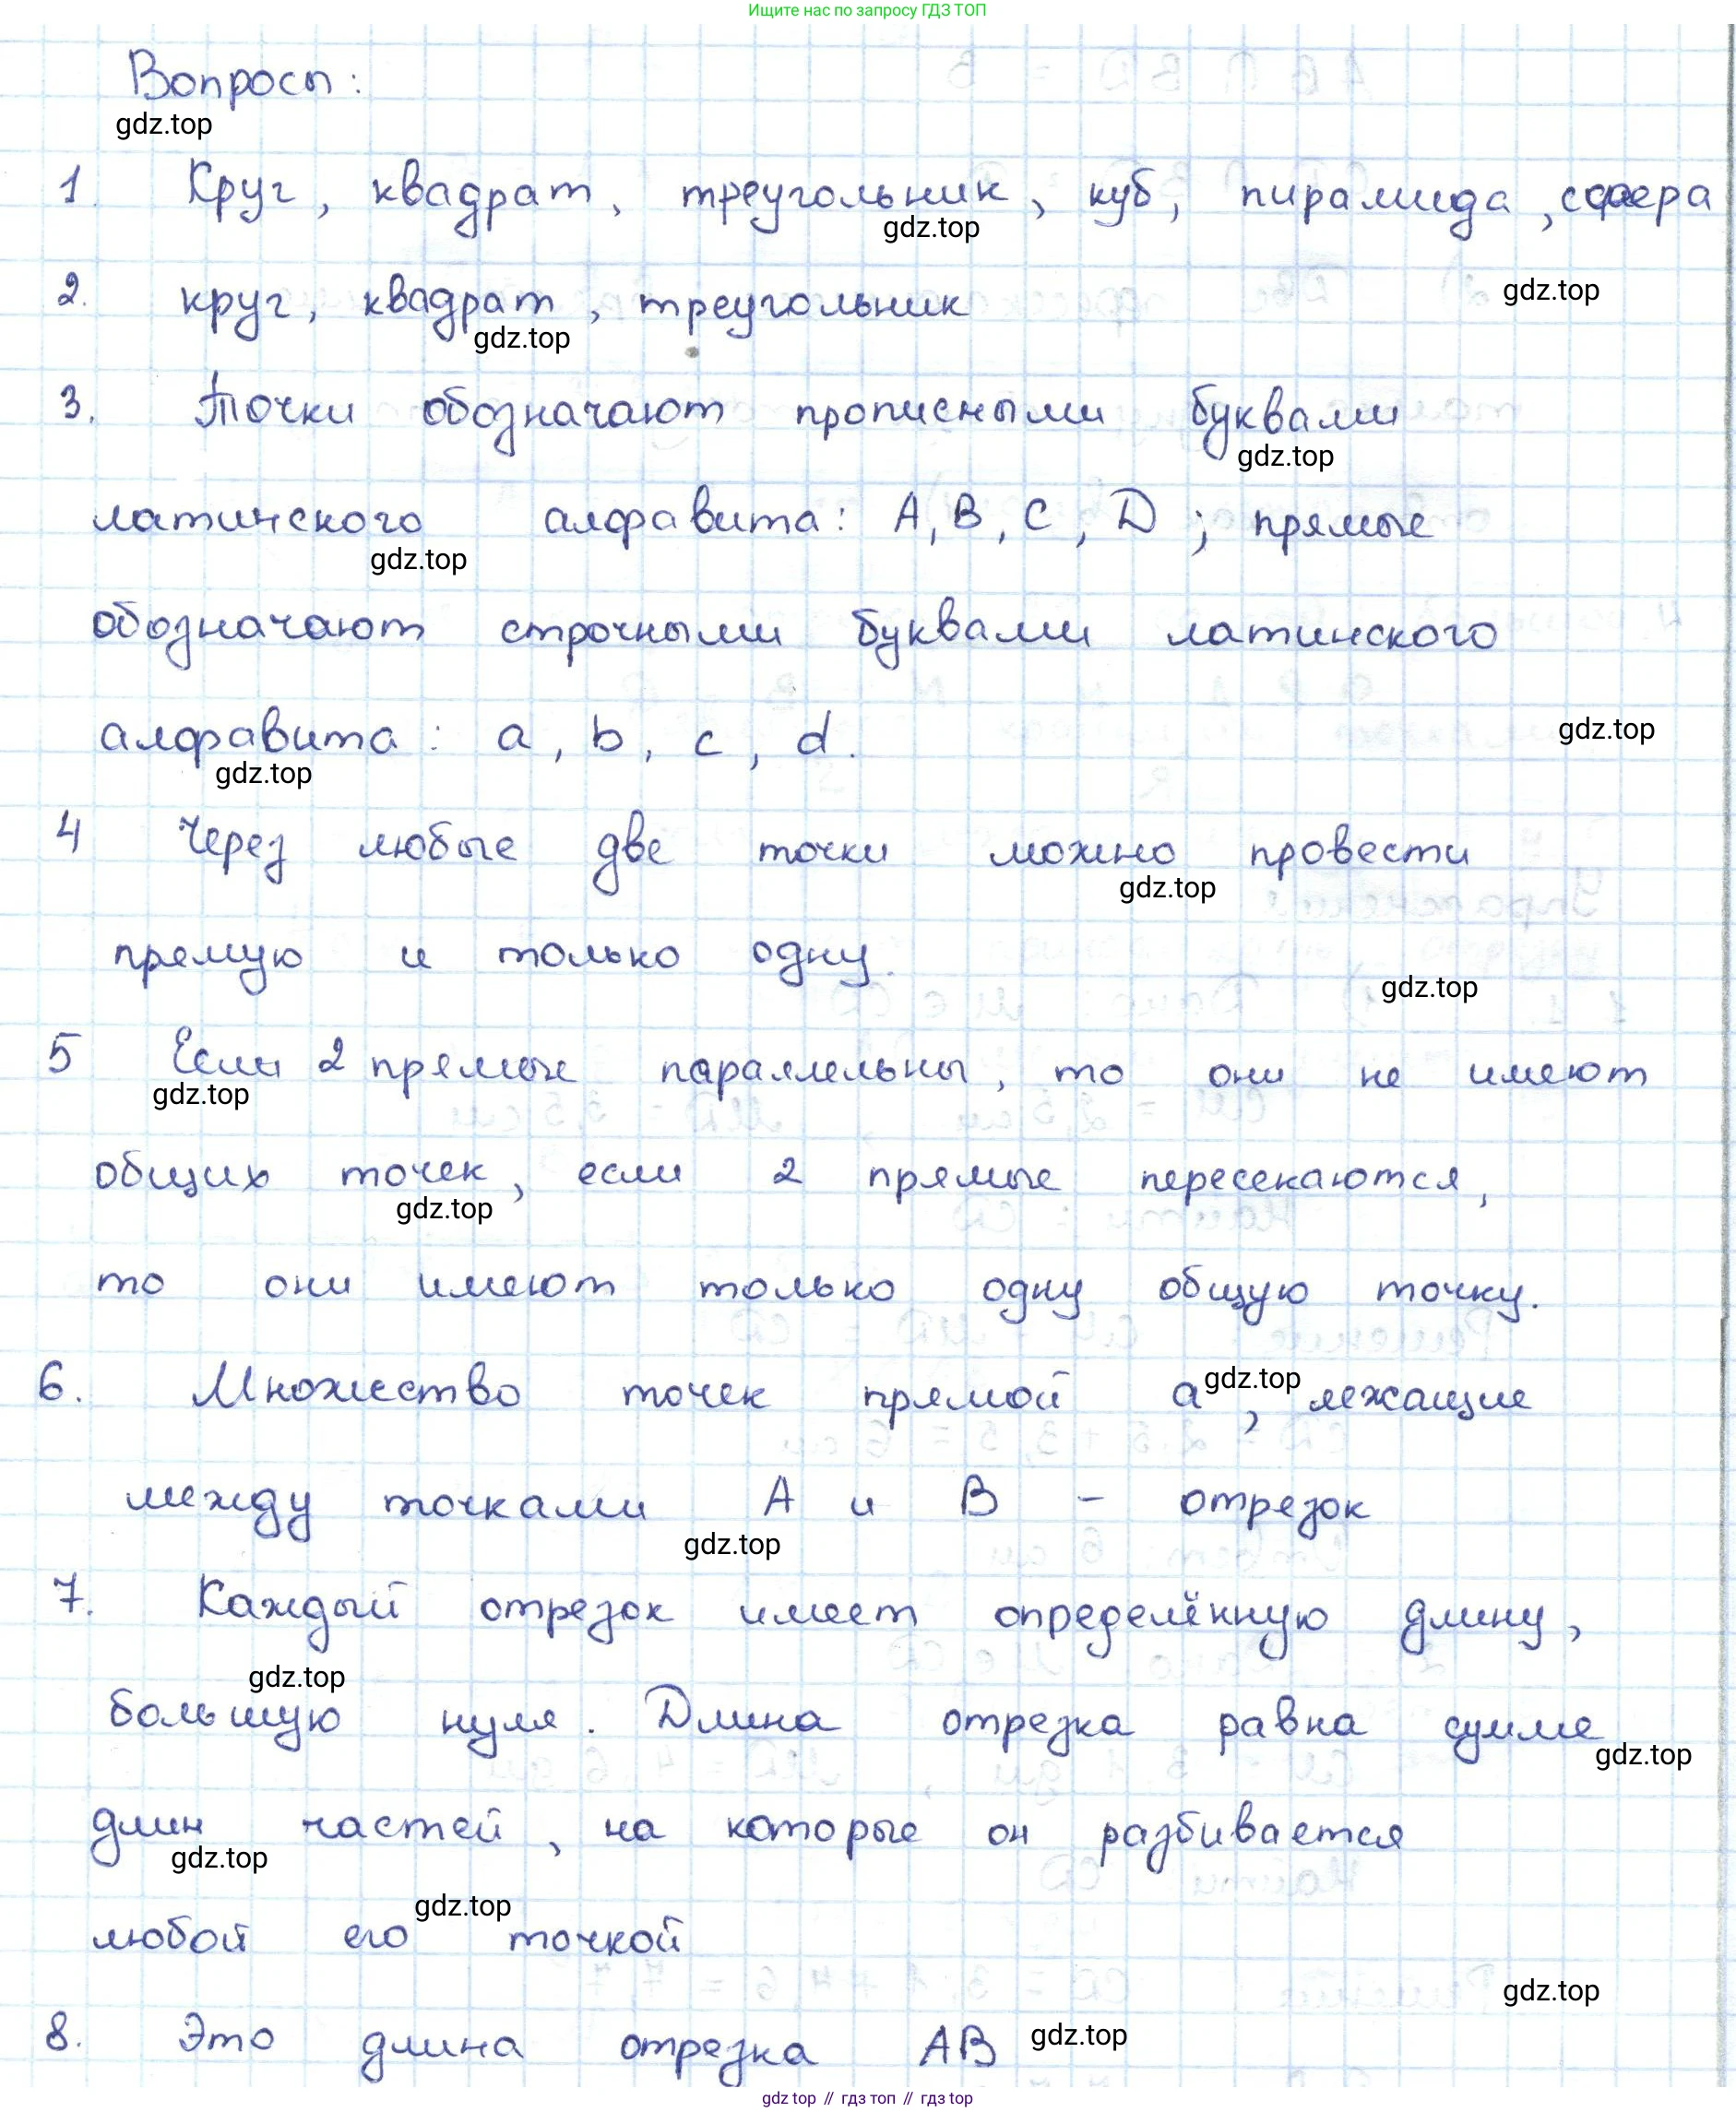 Ищите нас по запросу ГДЗ ТОП
Вопросы:
gdz.top
1. Круг, квадрат, треугольник, куб, пирамида, сфера
gdz.top
2. круг, квадрат, треугольник
gdz.top
gdz.top
3. Точки обозначают прописными буквами
gdz.top
латинского алфавита: A, B, C, D; прямые
gdz.top
обозначают строчными буквами латинского
алфавита: a, b, c, d.
gdz.top
gdz.top
4 Через любые две точки можно провести
gdz.top
прямую и только одну.
gdz.top
5 Если 2 прямые параллельны, то они не имеют
gdz.top
общих точек, если 2 прямые пересекаются,
gdz.top
то они имеют только одну общую точку.
6. Множество точек прямой a, лежащие
gdz.top
между точками A и B - отрезок
gdz.top
7. Каждый отрезок имеет определённую длину,
gdz.top
большую нуля. Длина отрезка равна сумме
gdz.top
длин частей, на которые он разбивается
gdz.top
gdz.top
любой его точкой
gdz.top
8. Это длина отрезка AB
gdz.top
gdz top // гдз топ // gdz top